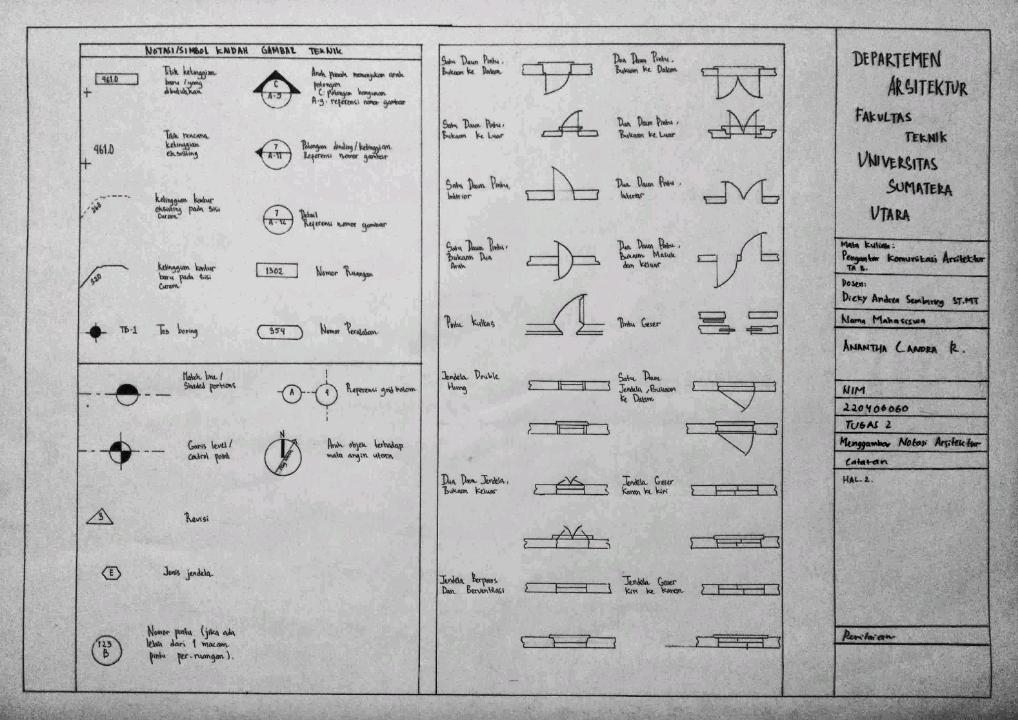 NOTASI/SIMBOL KAIDAH GAMBAR TEKNIK
461.0
Titik ketinggian
baru / yang
dibutuhkan
C
A-9
Arah panah menunjukan arah
potongan
C: potongan bangunan
A-9: referensi nomor gambar
461.0
Titik rencana
ketinggian
eksisting
7
A-11
Potongan dinding/ketinggian
Referensi nomor gambar
Ketinggian kontur
eksisting pada sisi
Curam
7
A-14
Detail
Referensi nomor gambar
Ketinggian kontur
baru pada sisi
Curam
1302
Nomor Ruangan
TB-1
Tes boring
354
Nomor Peralatan
Match line/
Shaded portions
A
Referensi grid kolom
Garis level/
cotrol point
N
Arah objek terhadap
mata angin utara
3
Revisi
E
Jenis jendela
123
B
Nomor pintu (jika ada
lebih dari 1 macam
pintu per-ruangan).
Satu Daun Pintu,
Bukaan ke Dalam
Dua Daun Pintu,
Bukaan ke Dalam
Satu Daun Pintu,
Bukaan ke Luar
Dua Daun Pintu,
Bukaan Ke Luar
Satu Daun Pintu,
Interior
Dua Daun Pintu,
Interior
Satu Daun Pintu,
Bukaan Dua
Arah
Dua Daun Pintu,
Bukaan Masuk
dan Keluar
Pintu Kulkas
Pintu Geser
Jendela Druble
Hung
Satu Daun
Jendela, Bukaan
Ke Dalam
Dua Daun Jendela,
Bukaan Keluar
Jendela Geser
Kanan ke kiri
Jendela Berporos
Dan Berventilasi
Jendela Geser
Kiri ke Kanan
DEPARTEMEN
ARSITEKTUR
FAKULTAS
TEKNIK
UNIVERSITAS
SUMATERA
UTARA
Mata Kuliah:
Pengantar Komunikasi Arsitektur
TA B.
Dosen:
Dicky Andrea Sembiring ST.MT
Nama Mahasiswa
ANANTHA CANDRA R.
NIM
220406060
TUGAS 2
Menggambar Notasi Arsitektur
Catatan
HAL. 2.
Penilaian